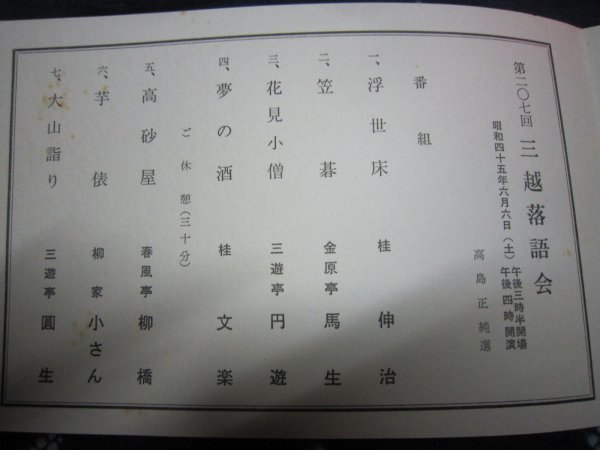 第二〇七回 三越落語会
昭和四十五年六月六日(土)
午後三時半開場
午後四時開演
高島正純選
番組
一、浮世床 桂伸治
二、笠碁 金原亭馬生
三、花見小僧 三遊亭円遊
四、夢の酒 桂文楽
ご休憩(三十分)
五、高砂屋 春風亭柳橋
六、芋俵 柳家小さん
七、大山詣り 三遊亭圓生